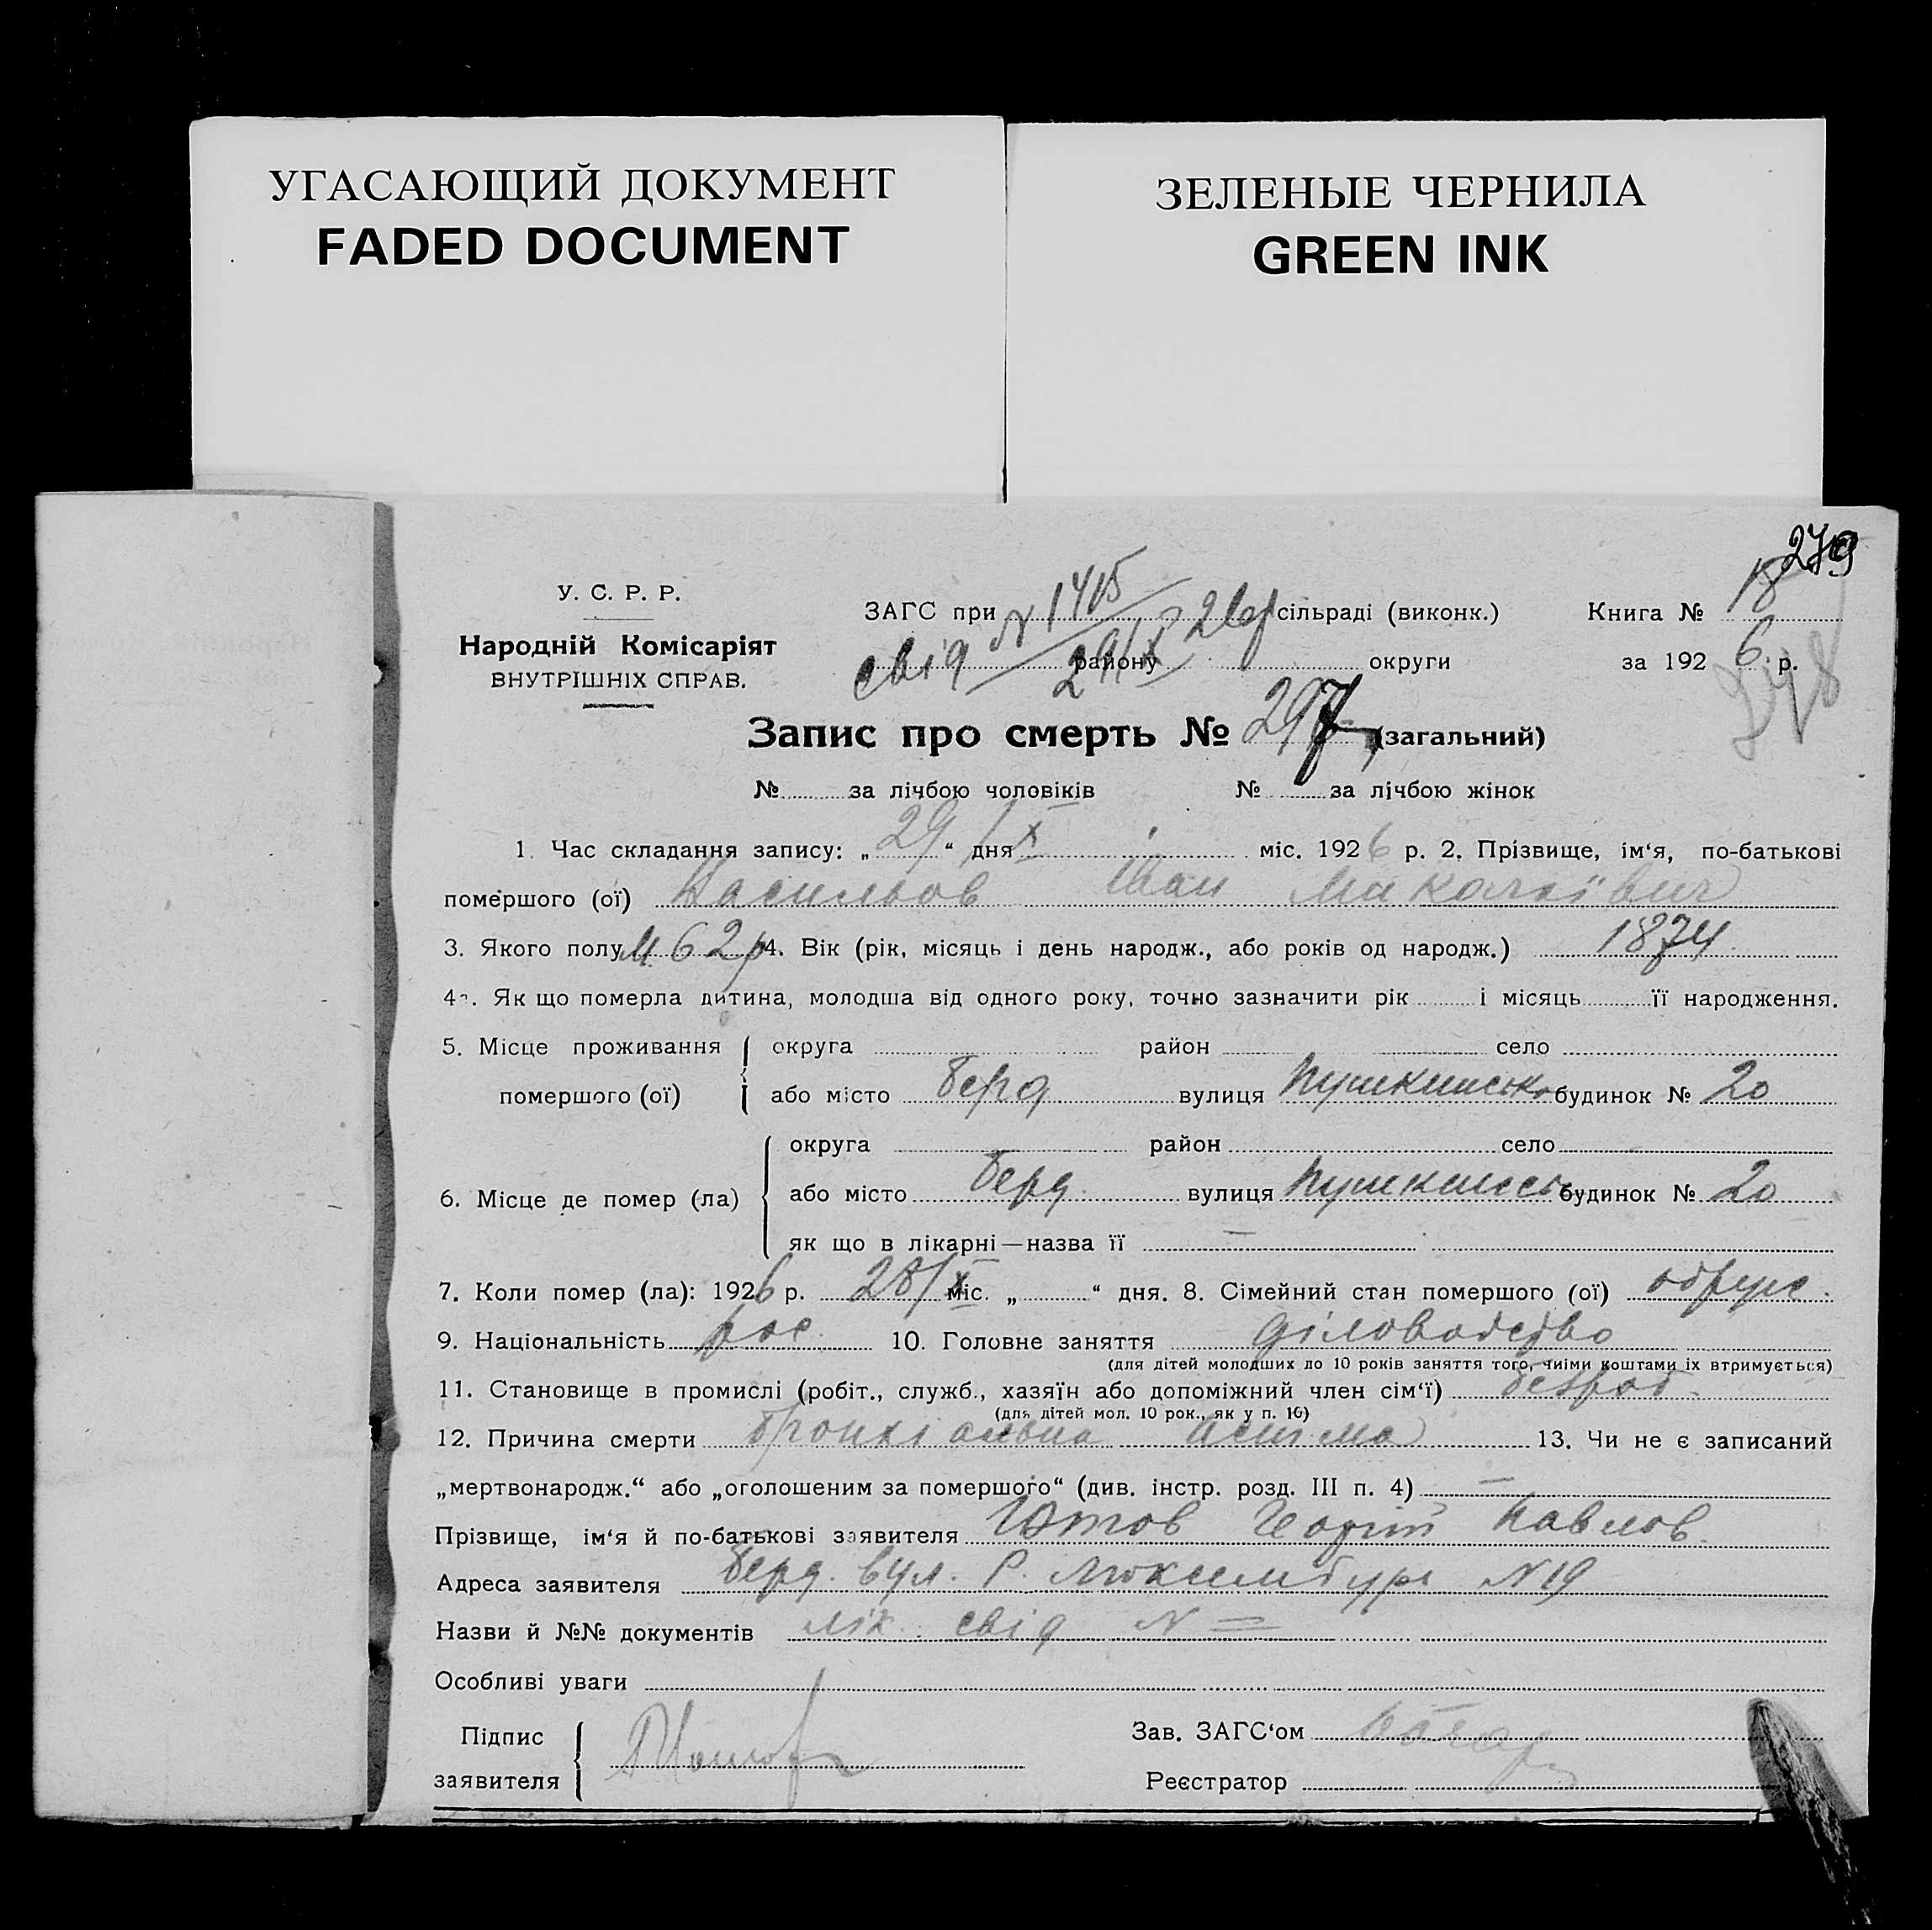 УГАСАЮЩИЙ ДОКУМЕНТ
FADED DOCUMENT
ЗЕЛЕНЫЕ ЧЕРНИЛА
GREEN INK
279
278
У. С. Р. Р.
Народній Комісаріят
ВНУТРІШНІХ СПРАВ.
ЗАГС при N 1415 сільраді (виконк.) Книга № 18
свід 29/X 26р району округи за 1926 р.
Запис про смерть № 297 (загальний)
№ за лічбою чоловіків № за лічбою жінок
1. Час складання запису: „29“ дня X міс. 1926 р. 2. Прізвище, ім‘я, по-батькові
помершого (ої) Васильов Іван
3. Якого полу М 62р 4. Вік (рік, місяць і день народж., або років од народж.) 1874
4а. Як що померла дитина, молодша від одного року, точно зазначити рік і місяць її народження.
5. Місце проживання помершого (ої) округа район село
або місто Берд вулиця Пушкинська будинок № 20
6. Місце де помер (ла) округа район село
або місто Берд вулиця Пушкинськ будинок № 20
як що в лікарні—назва її —
7. Коли помер (ла): 1926 р. 28/X міс. „ “ дня. 8. Сімейний стан помершого (ої) одруж.
9. Національність рос. 10. Головне заняття діловодство
(для дітей молодших до 10 років заняття того, чиїми коштами їх втримується)
11. Становище в промислі (робіт., служб., хазяїн або допоміжний член сім‘ї) безроб.
(для дітей мол. 10 рок., як у п. 10)
12. Причина смерти бронхіальна астма 13. Чи не є записаний
„мертвонародж.“ або „оголошеним за помершого“ (див. інстр. розд. III п. 4) —
Прізвище, ім‘я й по-батькові заявителя Павлов.
Адреса заявителя Берд. вул. Р. Люксембург N 19
Назви й №№ документів лік. свід N =
Особливі уваги
Підпис
заявителя
Зав. ЗАГС‘ом
Реєстратор